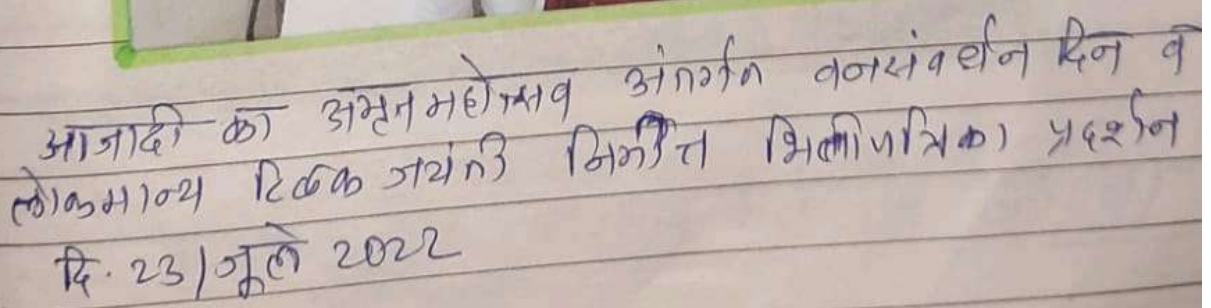 आजादी का अमृतमहोत्सव अंतर्गत वनसंवर्धन दिन व
लोकमान्य टिळक जयंती निमीत्त भित्तीपत्रिका प्रदर्शन
दि. 23/जूले 2022